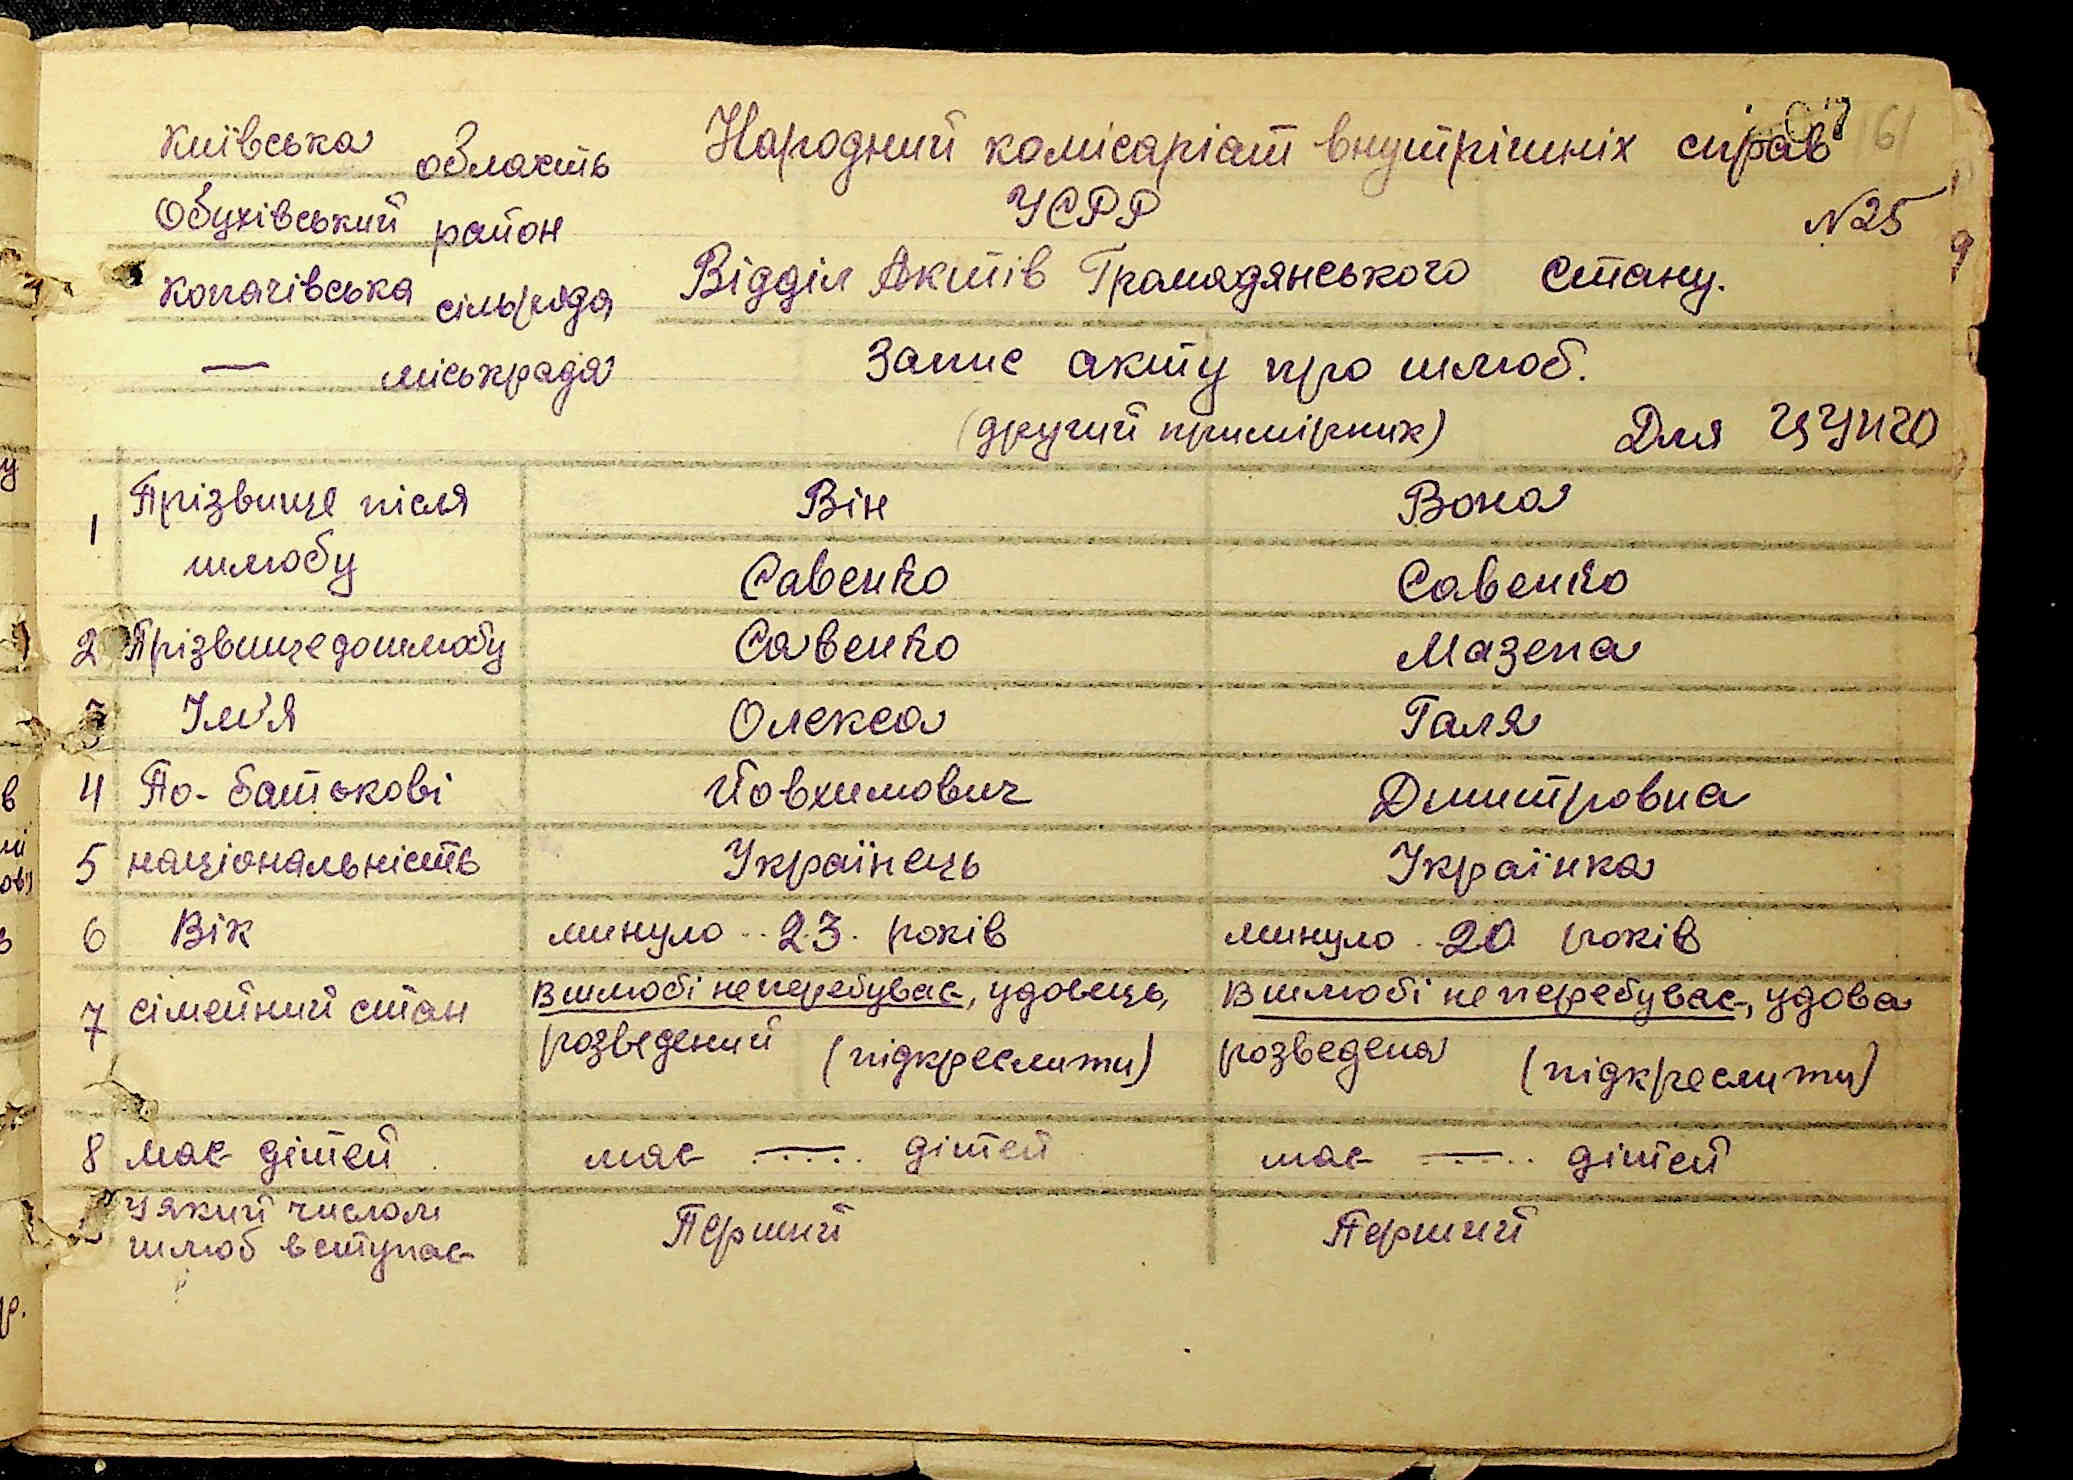 Київська область
Обухівський район
Копачівська сільрада
— міськрада
Народний комісаріат внутрішніх справ
УСРР
N25
Відділ Актів Громадянського Стану.
Запис акту про шлюб.
(другий примірник) Для ЦУНГО
1 Прізвище після шлюбу Він Вона
Савенко Савенко
2 Прізвище до шлюбу Савенко Мазепа
3 Ім'я Олекса Галя
4 По-батькові Йовхимович Дмитровна
5 національність Українець Українка
6 Вік минуло 23 років минуло 20 років
7 сімейний стан В шлюбі не перебуває, удовець, В шлюбі не перебуває, удова
розведений (підкреслити) розведена (підкреслити)
8 має дітей має — дітей має — дітей
У який числом Перший Перший
шлюб вступає